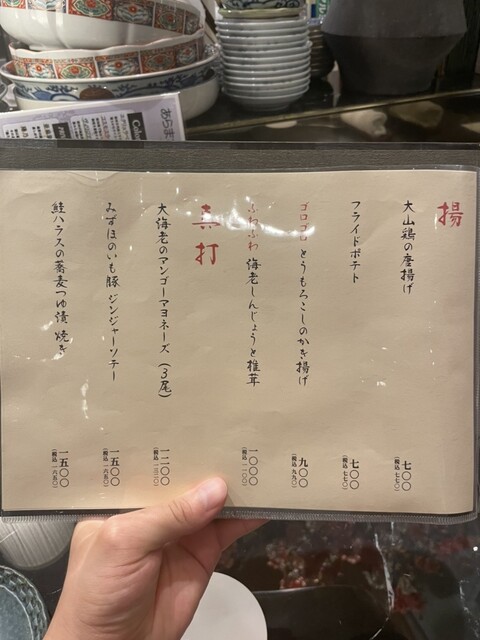 揚
大山鶏の唐揚げ
七〇〇
(税込 七七〇)
フライドポテト
七〇〇
(税込 七七〇)
ゴロゴロ とうもろこしのかき揚げ
九〇〇
(税込 九九〇)
ふわふわ 海老しんじょうと椎茸
一〇〇〇
(税込 一一〇〇)
真打
大海老のアンゴーアマヨネーズ (3尾)
一二〇〇
(税込 一三二〇)
みずほのいも豚 ジンジャーソテー
一五〇〇
(税込 一六五〇)
鮭ハラスの蕎麦つゆ漬 焼き
一五〇〇
(税込 一六五〇)